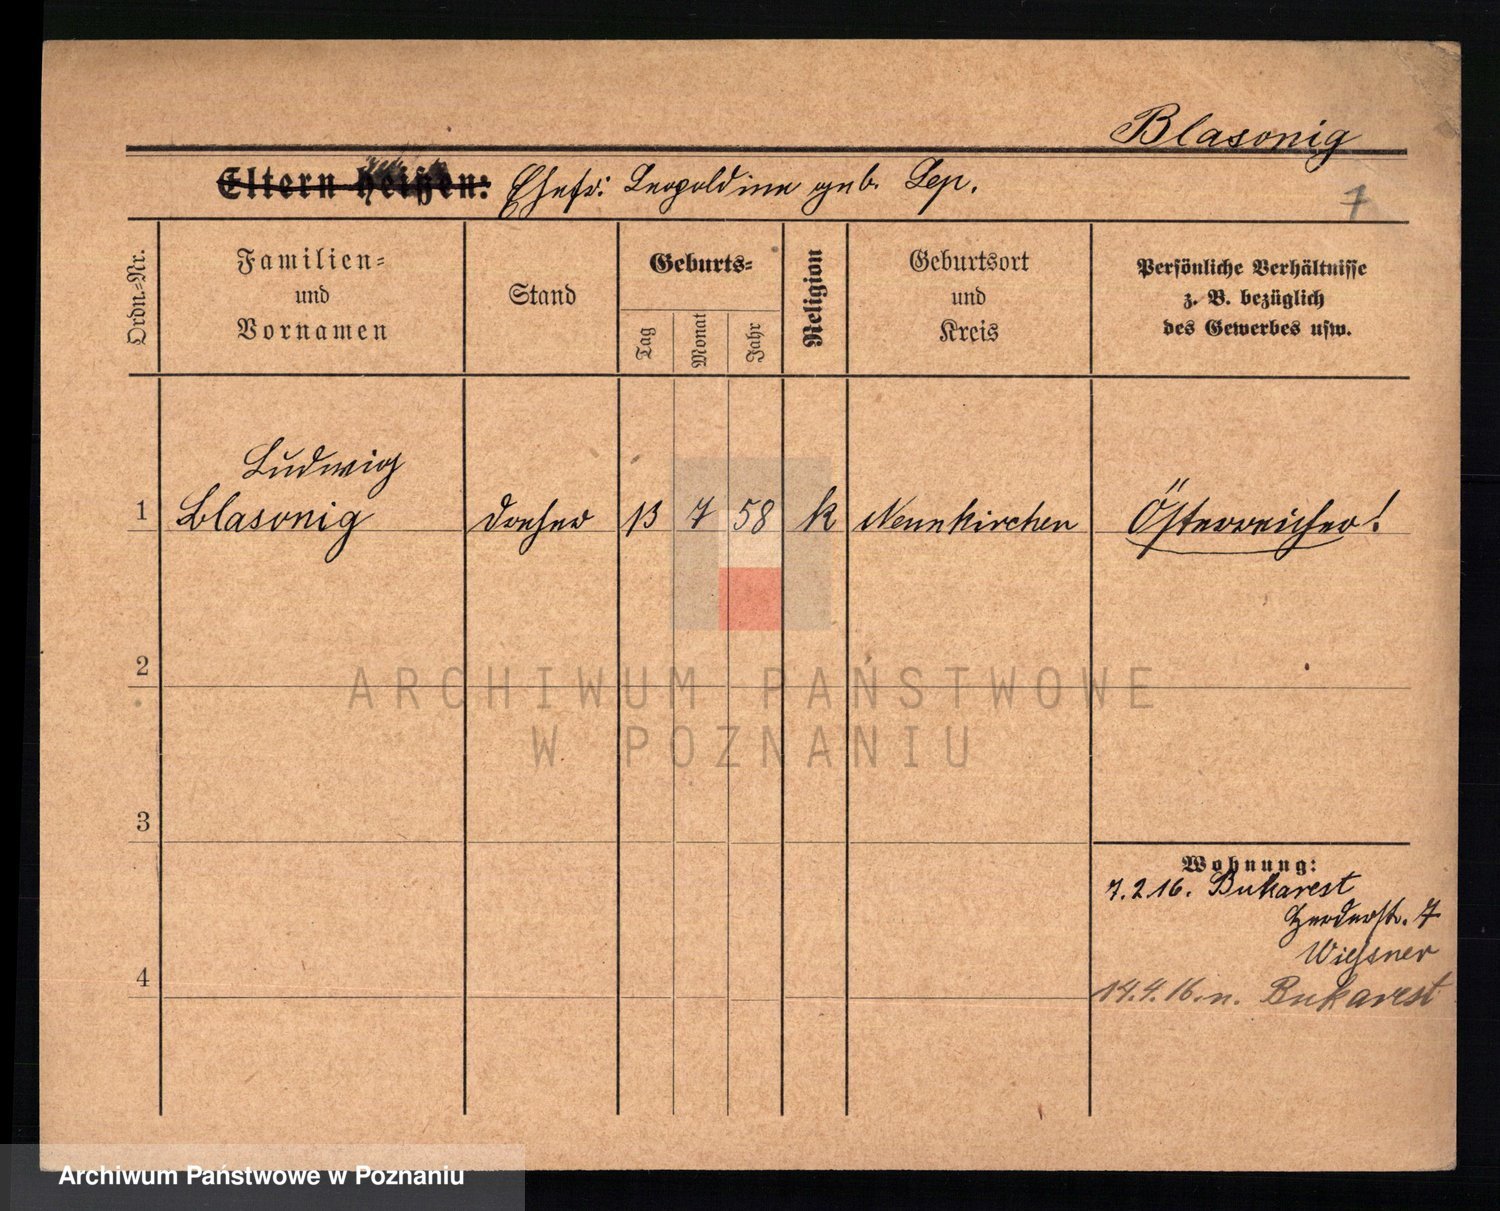 Blasonig
Eltern heißen: Ehefr: Leopoldine geb. Sep.
7
Ordn.-Nr.
Familien-
und
Vornamen
Stand
Geburts-
Tag
Monat
Jahr
Religion
Geburtsort
und
Kreis
Persönliche Verhältnisse
z. B. bezüglich
des Gewerbes usw.
Ludwig
1 Blasonig Dreher 13 7 58 k Neunkirchen Österreicher!
2
3
4
Wohnung:
7.2.16. Bukarest
Herderstr. 7
Wiessner
14.4.16. n. Bukarest
ARCHIWUM PAŃSTWOWE
W POZNANIU
Archiwum Państwowe w Poznaniu